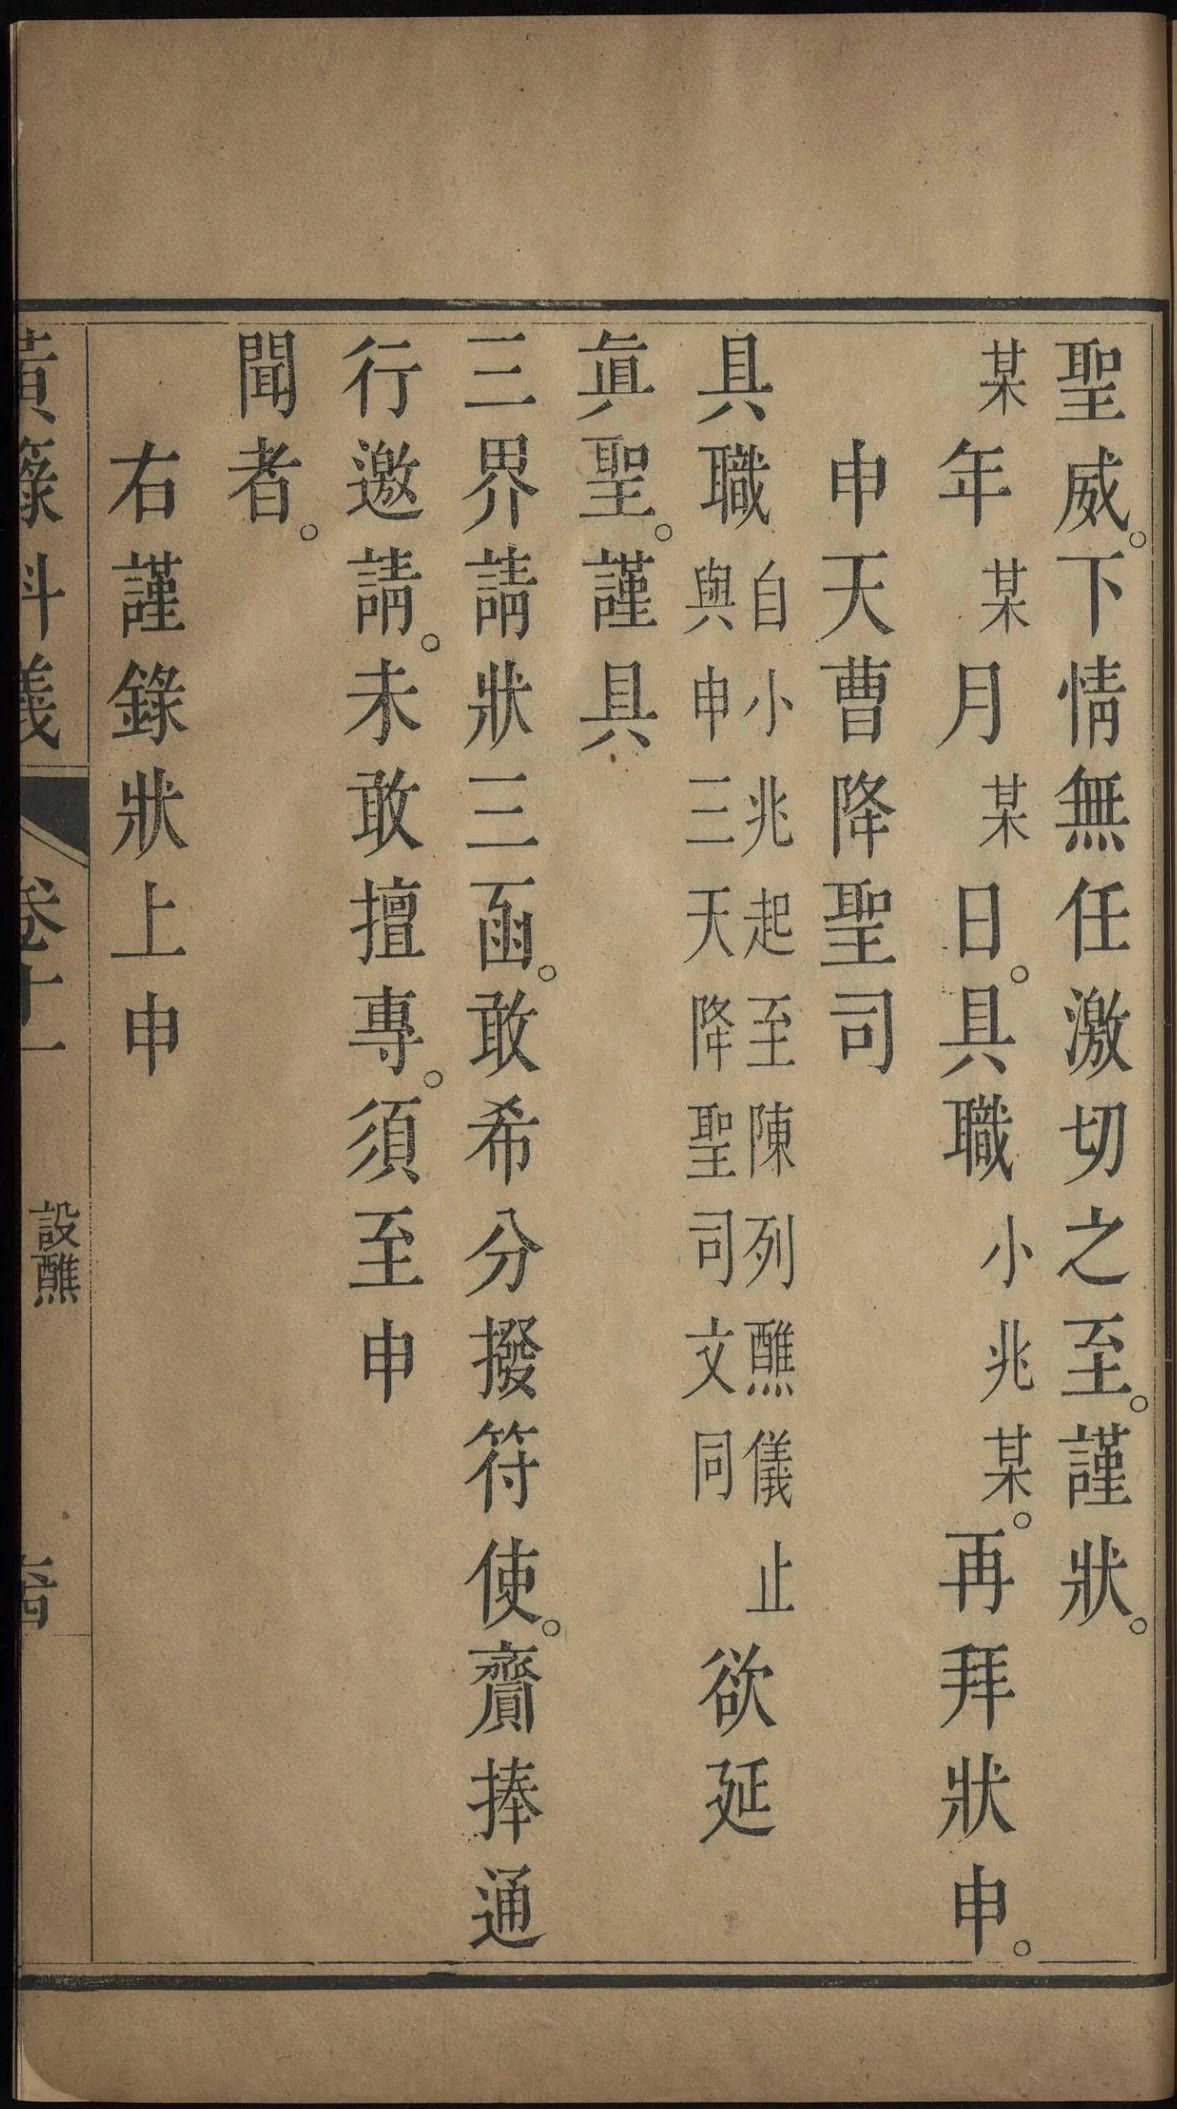 聖威。下情無任激切之至。謹狀。
某年某月某日。具職小兆某。再拜狀申。
申天曹降聖司
具職自小兆起至陳列醮儀止與申三天降聖司文同欲延
眞聖。謹具
三界請狀三函。敢希分撥符使。齎捧通
行邀請。未敢擅專。須至申
聞者。
右謹錄狀上申
黃籙科儀 卷十一 設醮